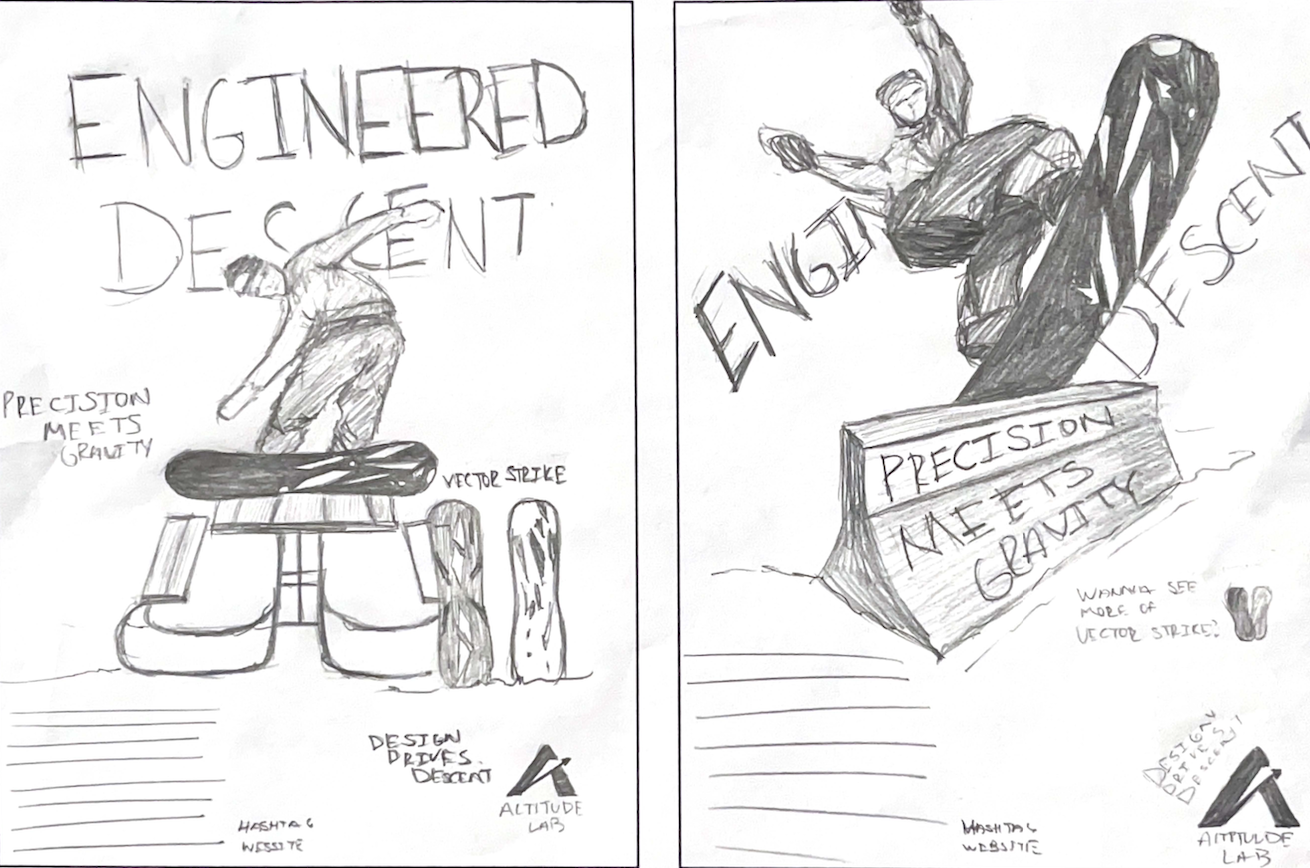 ENGINEERED
DESCENT
PRECISION
MEETS
GRAVITY
VECTOR STRIKE
DESIGN
DRIVES
DESCENT
ALTITUDE
LAB
HASHTAG
WEBSITE
ENGIN
DESCENT
PRECISION
MEETS
GRAVITY
WANNA SEE
MORE OF
VECTOR STRIKE?
DESIGN
DRIVES
DESCENT
ALTITUDE
LAB
HASHTAG
WEBSITE